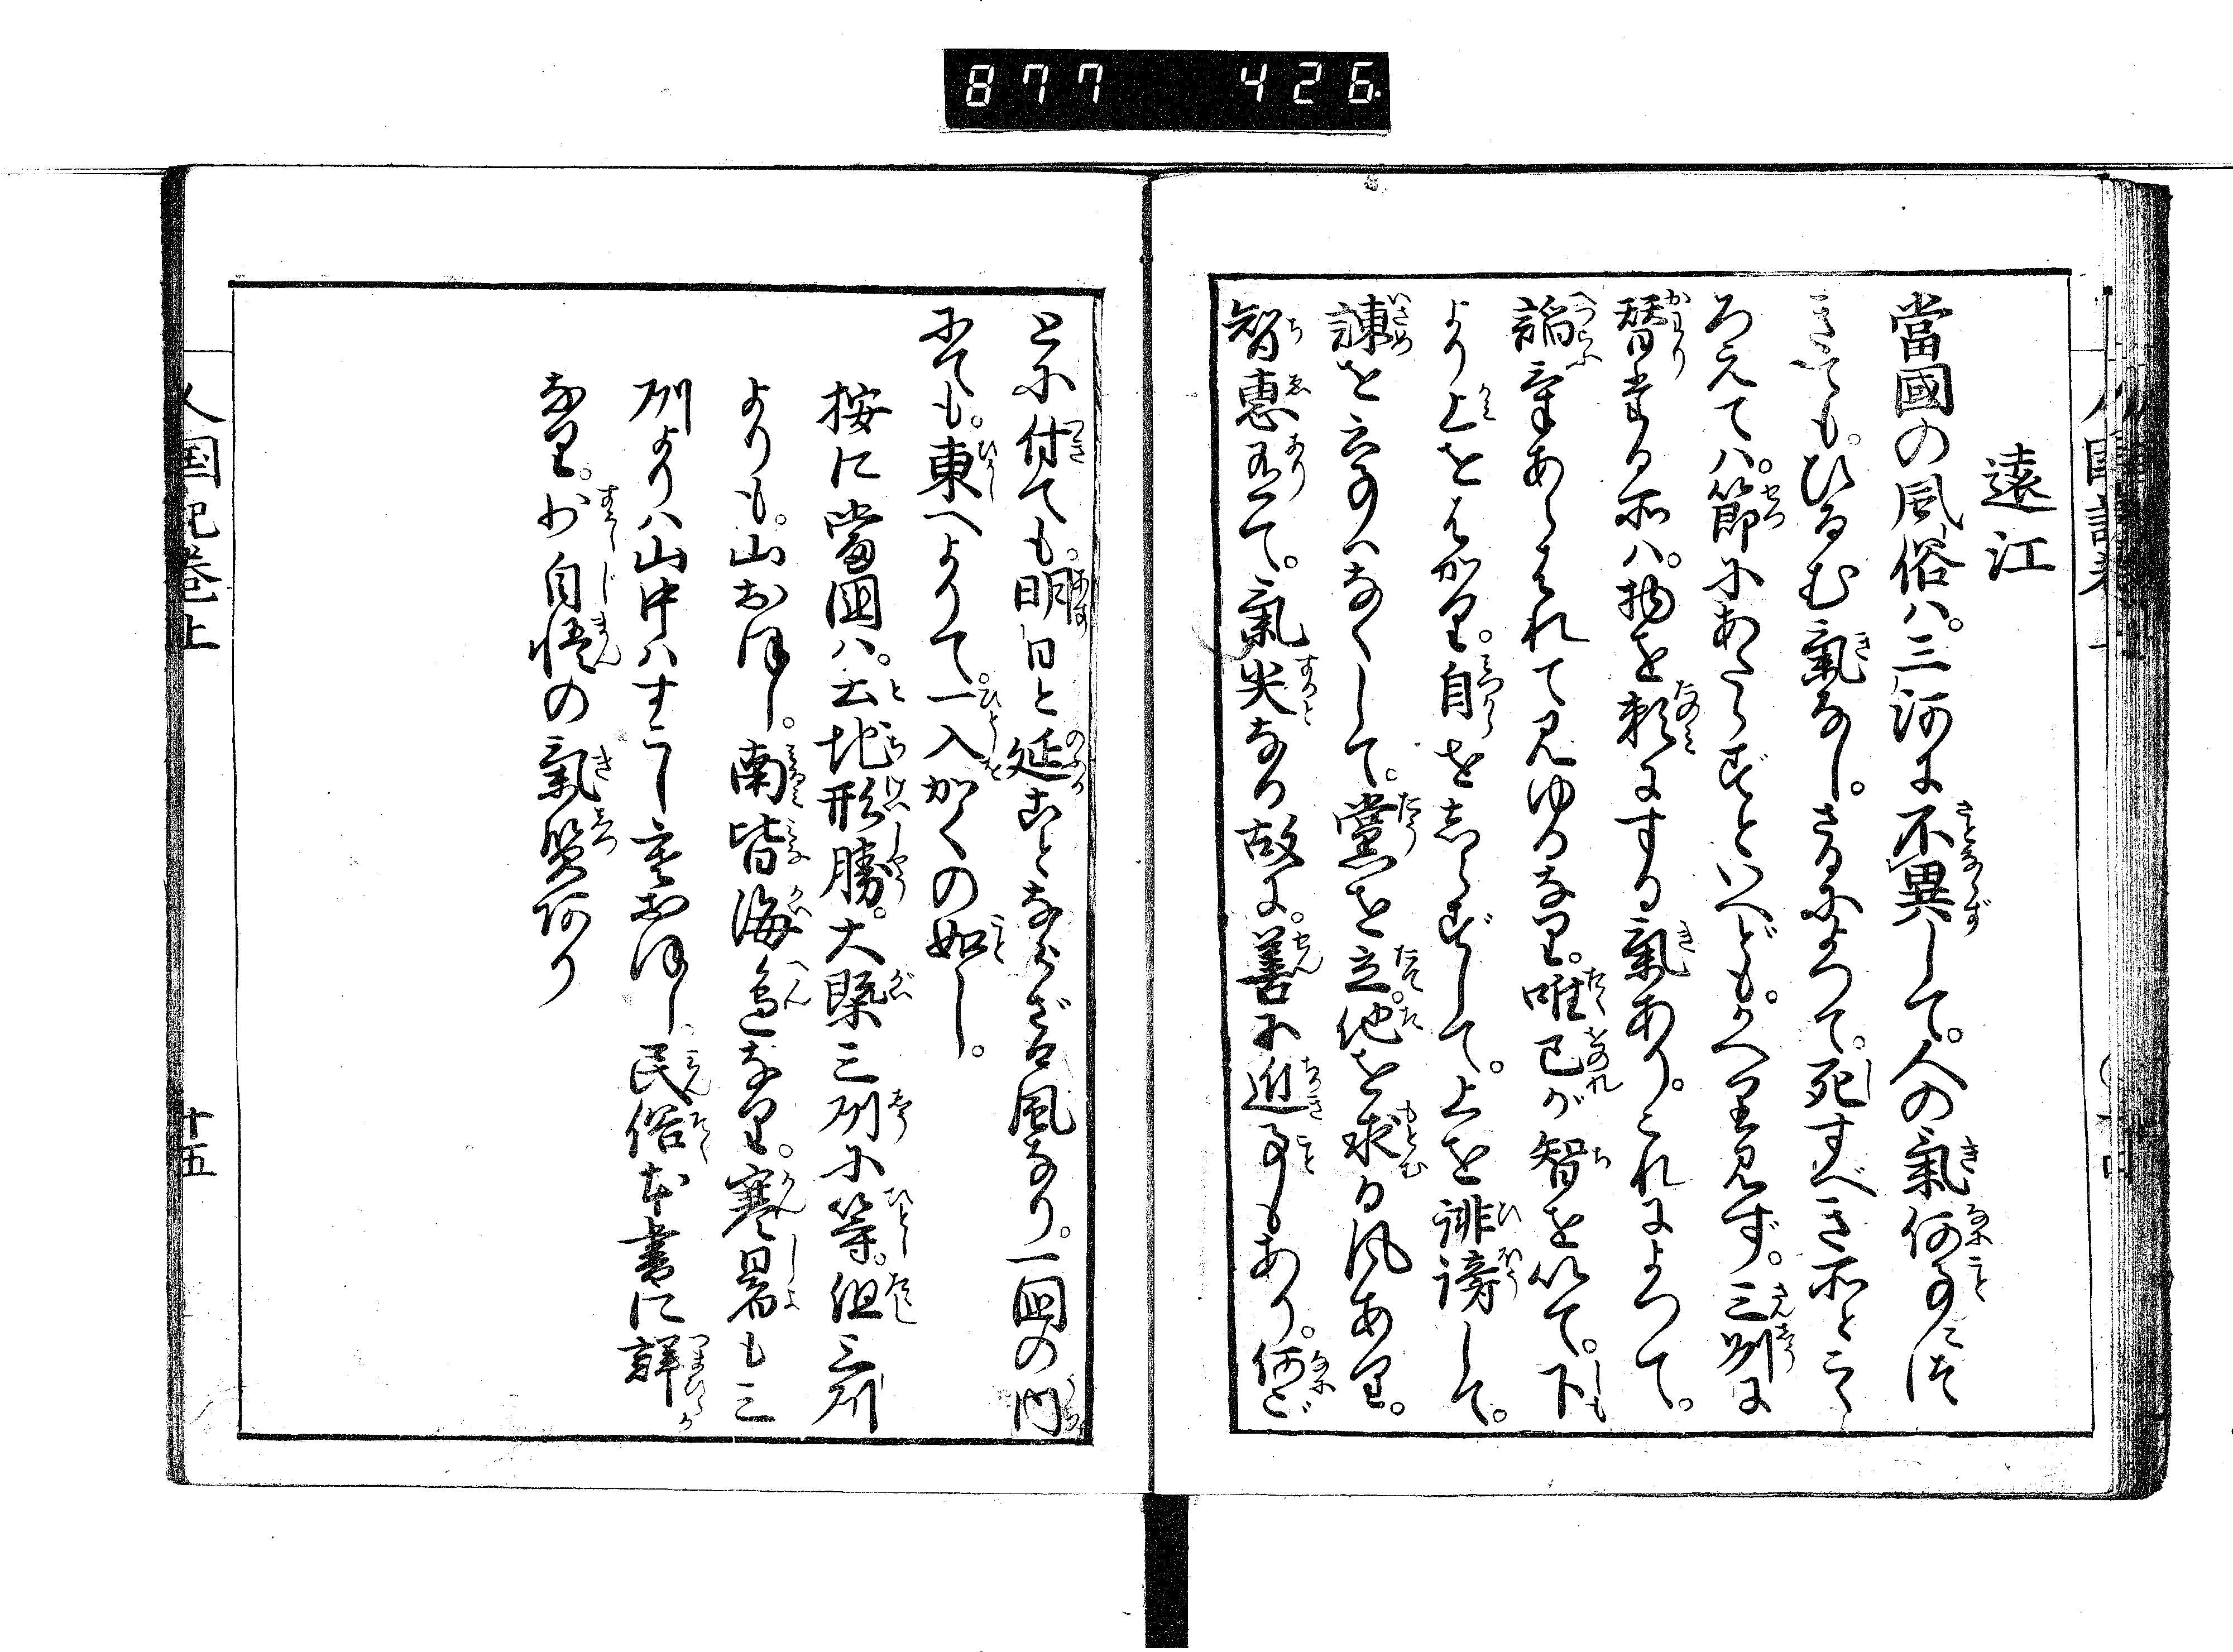 877 426
遠江
當國の風俗ハ。三河に不異して。人の氣何事につ
きても。ひるむ氣なし。さるによつて。死すべき所とこゝ
ろえてハ。節にあたらずといへども。かへり見ず。三州に
替る所ハ。物を頼にする氣あり。これによつて。
諂うあらはれて見ゆるなり。唯己が智を以て。下
より上をはかり。自を志らずして。上を誹謗して。
諌を云事ハなくして。黨を立。他を求る風あり。
智恵有て。氣尖なる故に。善に近事もあり。何ご
とに付ても。明日と延ことならざる風なり。一国の内
にても。東へよりて。一入かくの如し。
按に當国ハ。土地形勝。大槩三州に等。但三州
よりも。山おほし。南皆海邉なり。寒暑も三
州よりハ山中ハすこし寒おほし。民俗本書に詳
なり。少自慢の氣質阿り
人国記巻上
十五